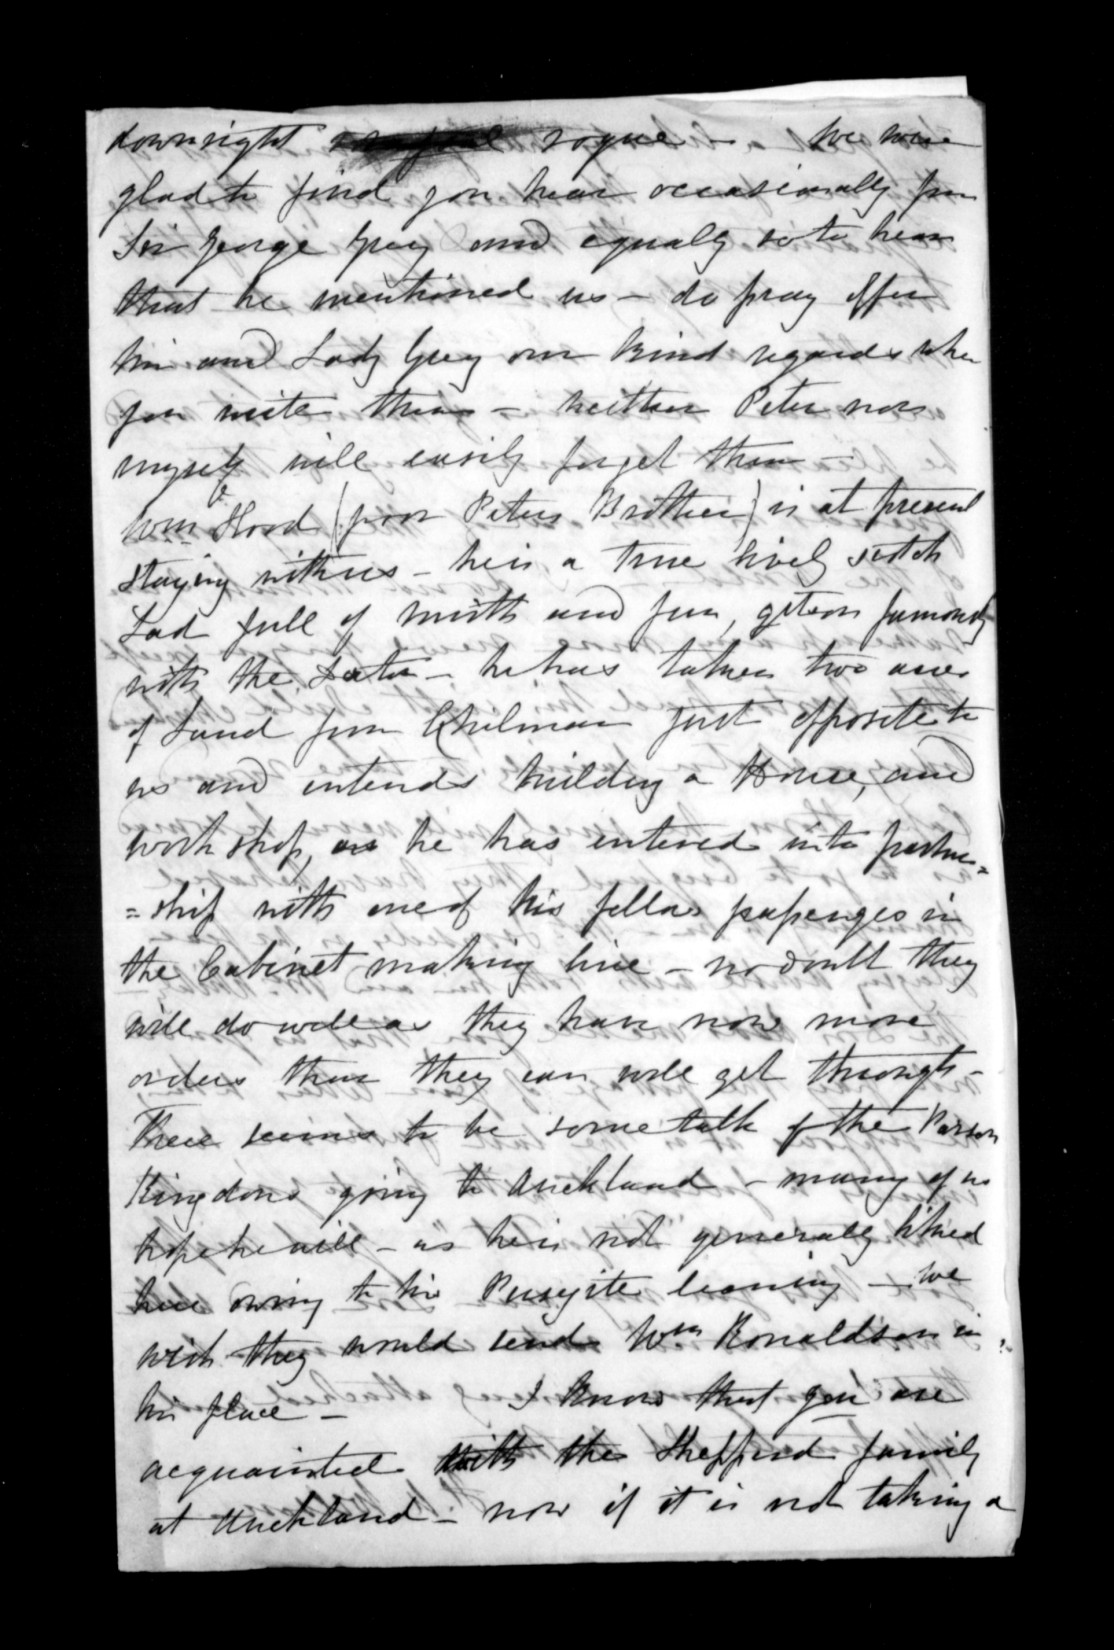 downright rogue - We were
glad to find you hear occasionally from
Sir George Grey and equally so to hear
that he mentioned us - do pray offer
him and Lady Grey our kind regards when
you write them - neither Peter nor
myself will easily forget them -
Wm Hood (poor Peters Brother) is at present
staying with us - he is a true lively scotch
Lad full of mirth and fun, gets on famously
with the - he has taken two acres
of Land from Chilman just opposite to
us and intends building a House, and
work shop, as he has entered into partner=
=ship with one of his fellow passengers in
the Cabinet making line - no doubt they
will do well as they have now more
orders than they can well get through -
There seems to be some talk of the Parson
Kingdons going to Auckland - many of us
hope he will - as he is not generally liked
here owing to his Puseyite leaning - We
wish they would send Wm Ronaldson in
his place - I know that you are
acquainted with the Shepherd family
at Auckland - now if it is not taking a